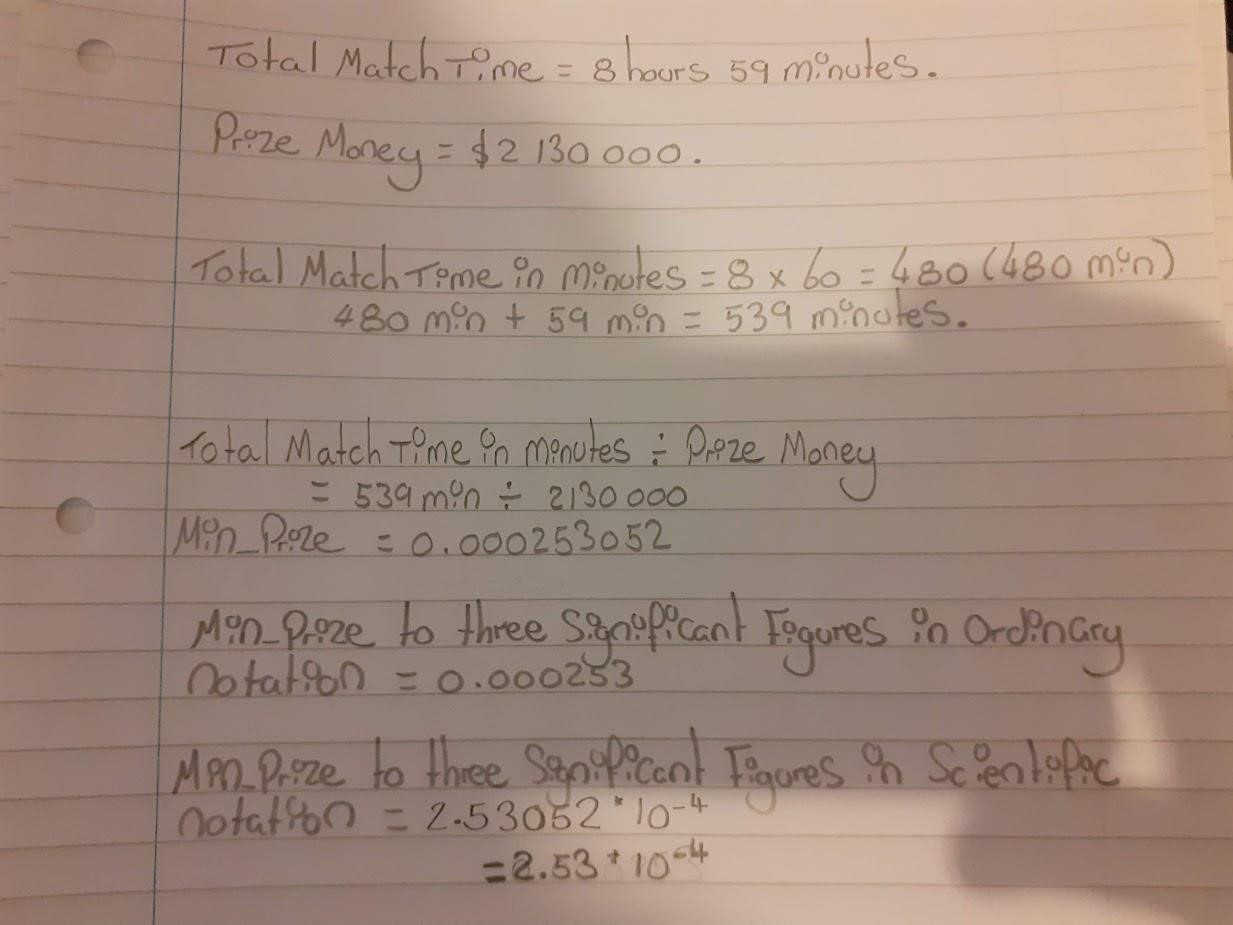 Total Match Time = 8 hours 59 minutes.
Prize Money = $2 130 000.
Total Match Time in minutes = 8 × 60 = 480 (480 min)
480 min + 59 min = 539 minutes.
Total Match Time in minutes ÷ Prize Money
= 539 min ÷ 2130 000
Min_Prize = 0.000253052
Min_Prize to three Significant Figures in Ordinary
notation = 0.000253
Min_Prize to three Significant Figures in Scientific
notation = 2.53052 * 10⁻⁴
= 2.53 * 10⁻⁴